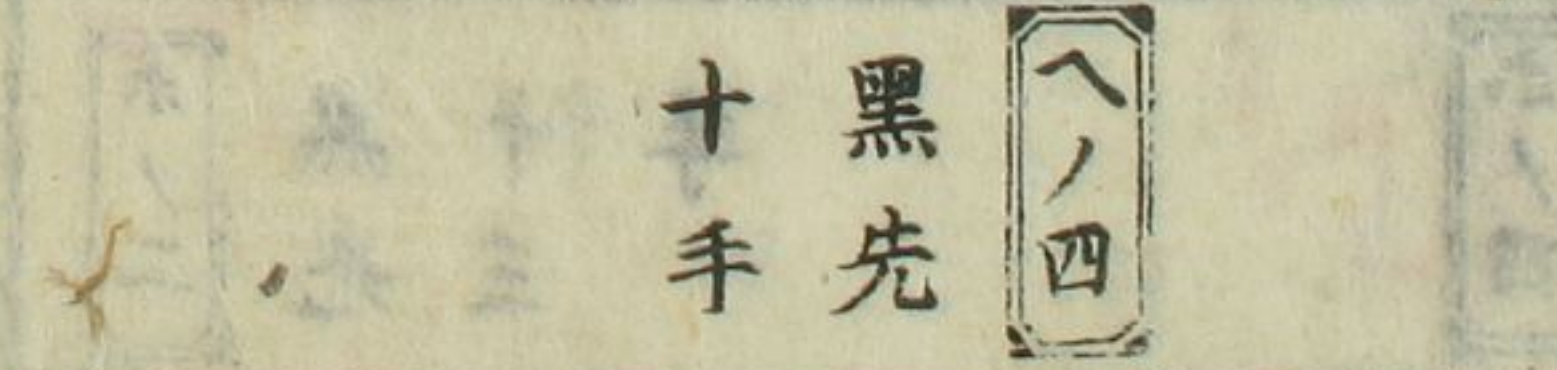 ヘノ四
黑先
十手